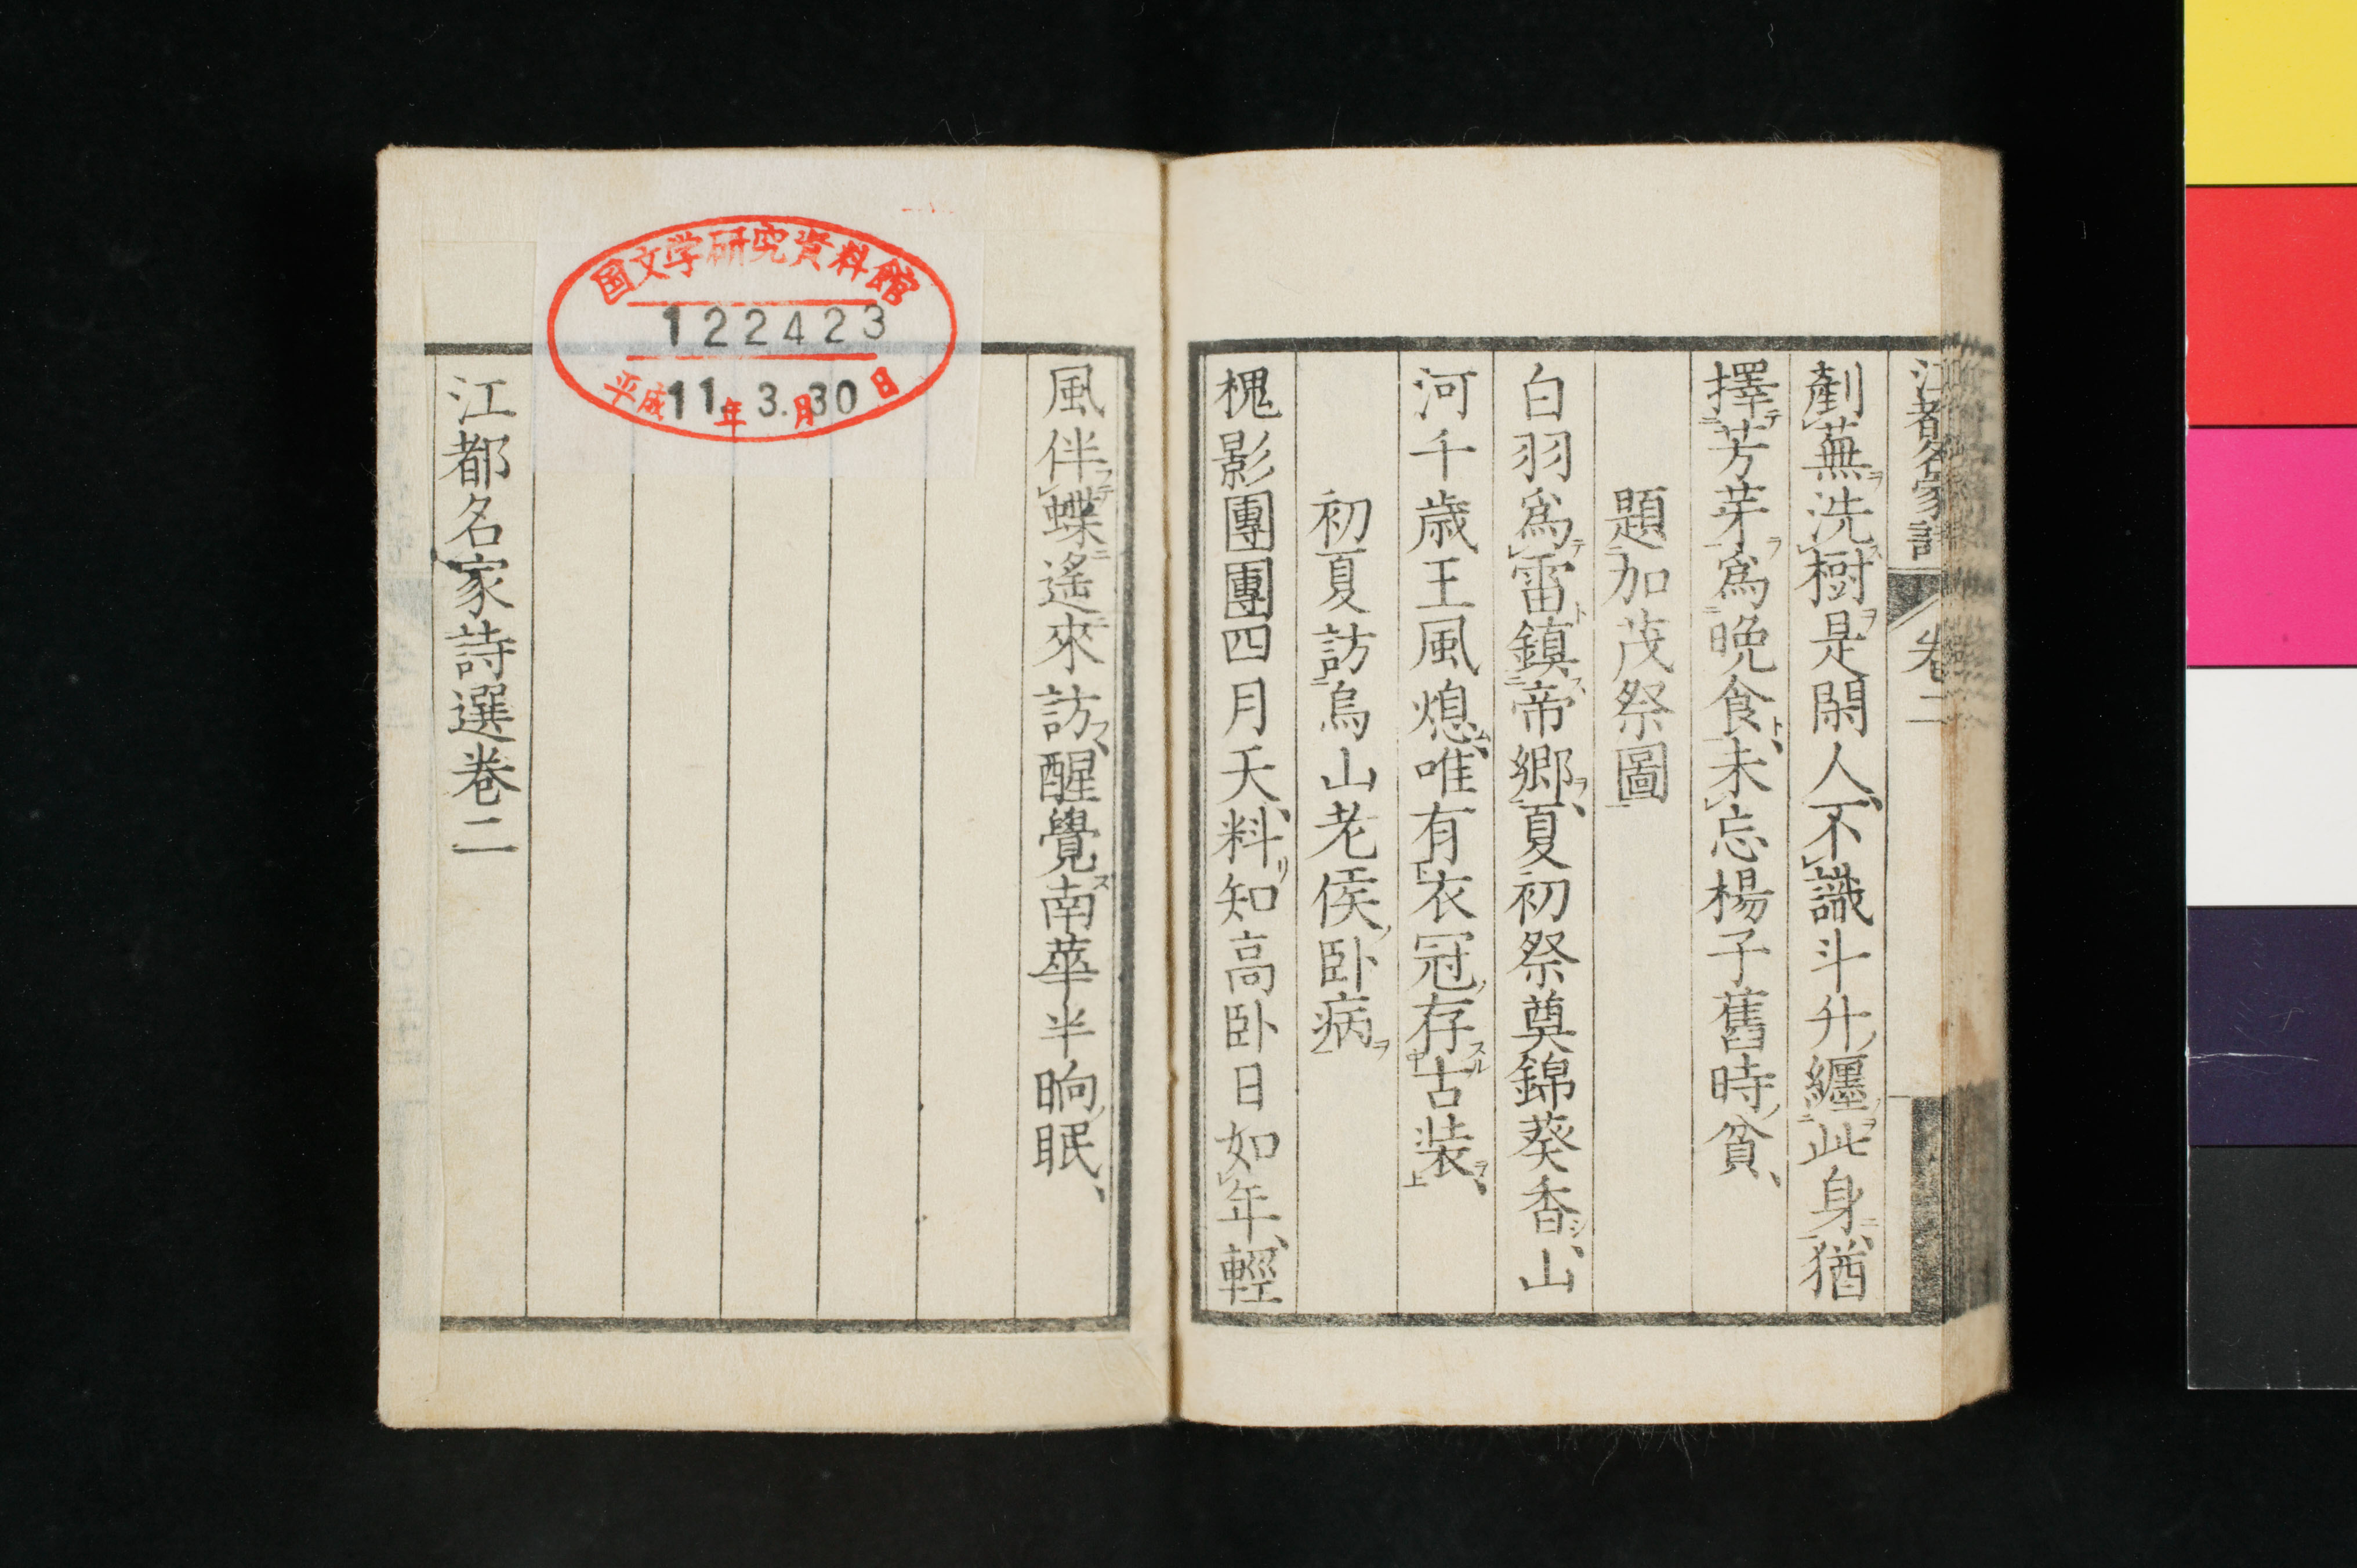 江都名家詩
卷二
剷蕪洗樹是閑人不識斗升纏此身猶
擇芳芽爲晚食未忘楊子舊時貧
題加茂祭圖
白羽爲雷鎮帝郷夏初祭奠錦葵香山
河千歳王風熄唯有衣冠存古装
初夏訪烏山老侯卧病
槐影團團四月天料知高卧日如年輕
風伴蝶遙來訪醒覺南華半晌眠
江都名家詩選卷二
国文学研究資料館
122423
平成11年3.月30日